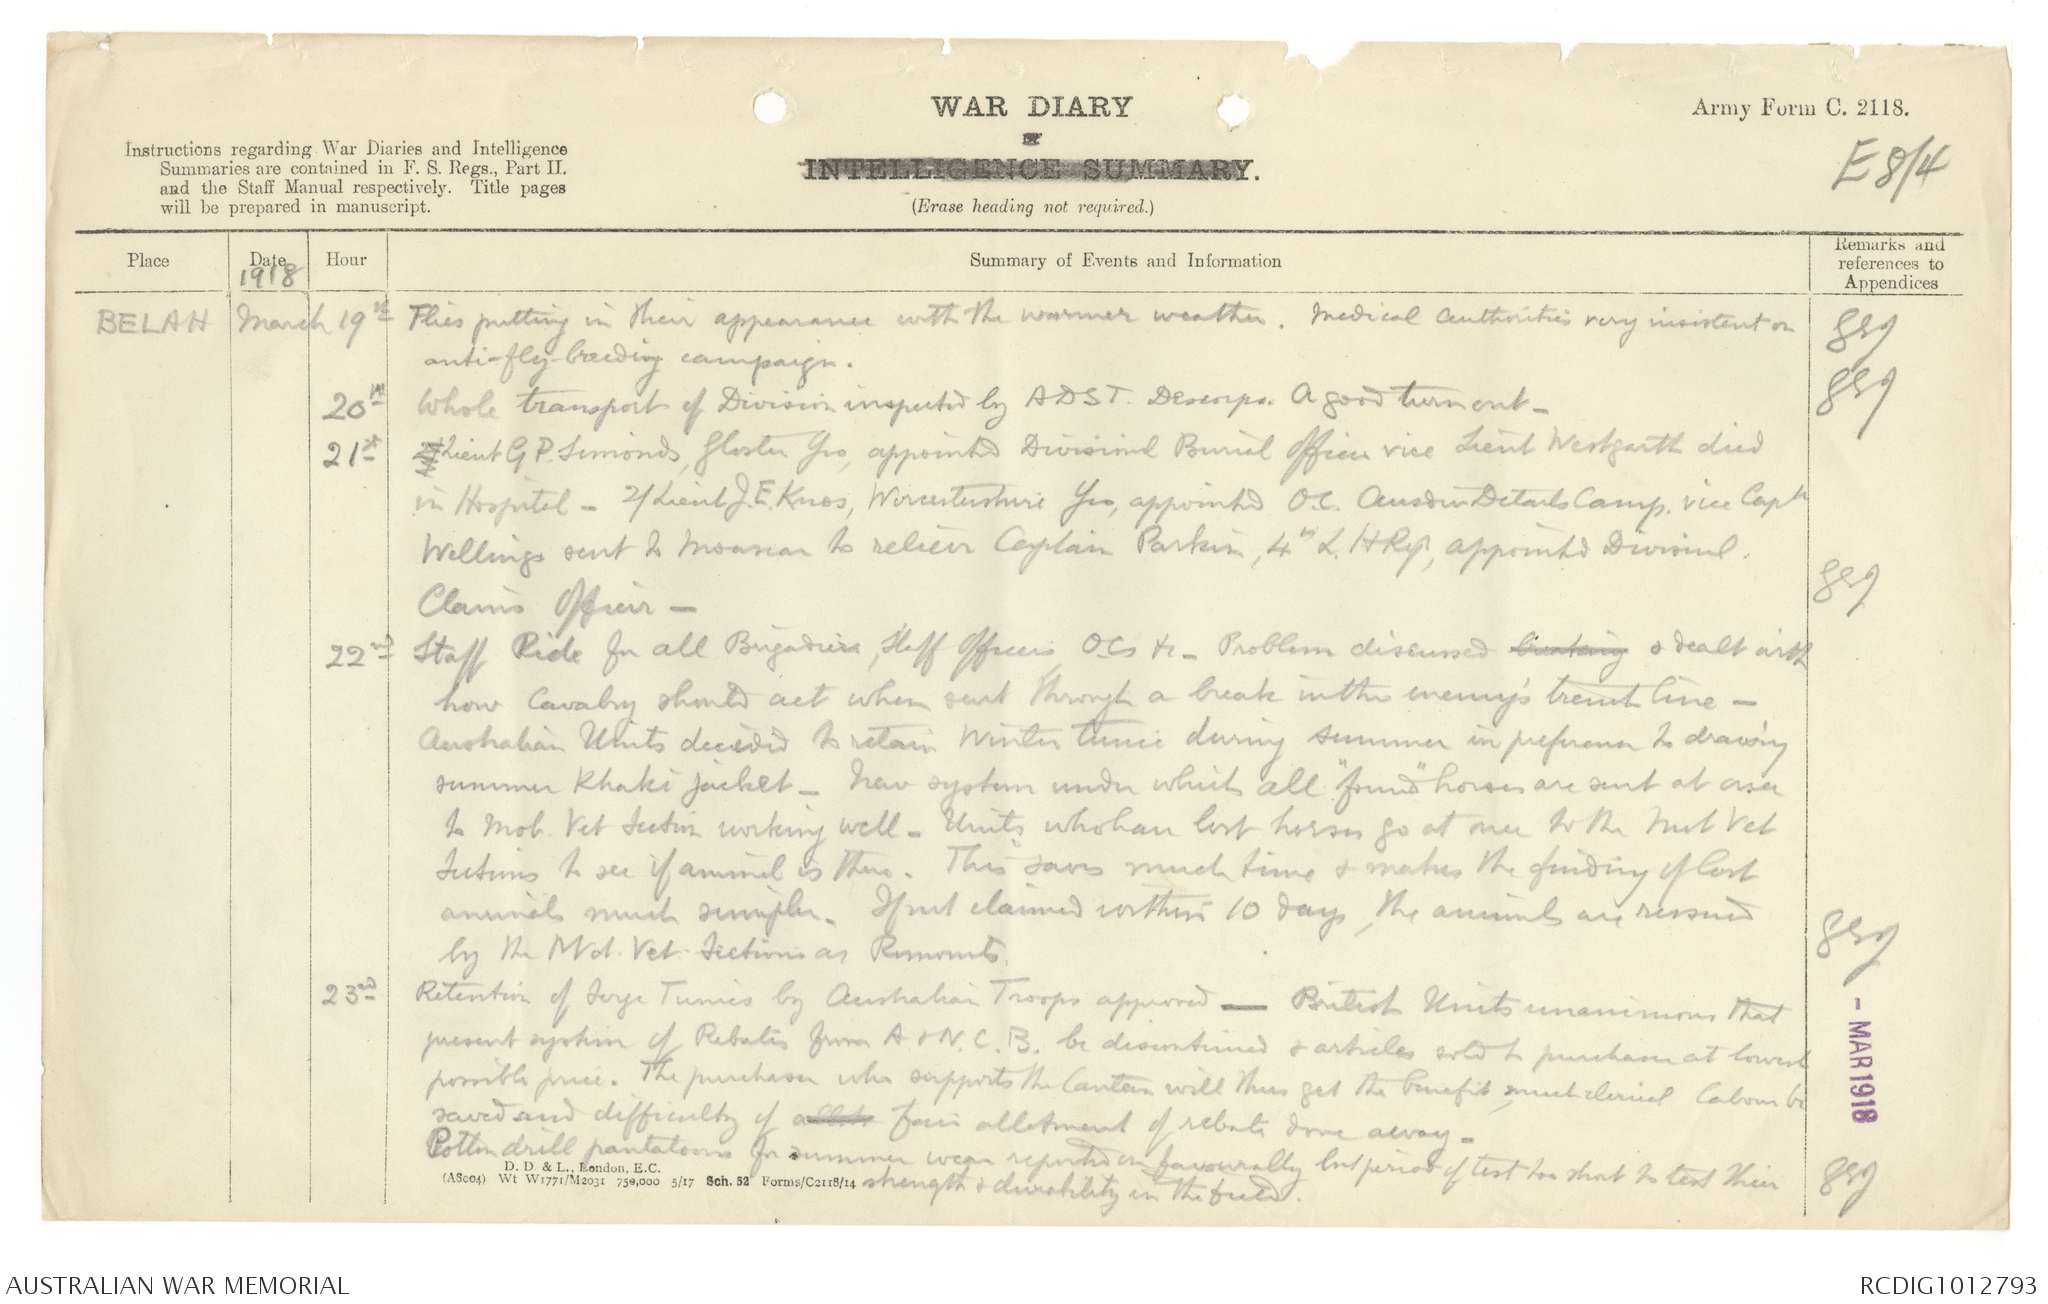 WAR DIARY
or
INTELLIGENCE SUMMARY.
(Erase heading not required.)
Army Form C. 2118.
E 8/4
Instructions regarding War Diaries and Intelligence
Summaries are contained in F. S. Regs., Part II.
and the Staff Manual respectively. Title pages
will be prepared in manuscript.
Place
Date
1918
Hour
Summary of Events and Information
Remarks and
references to
Appendices
BELAH March 19th Flies putting in their appearance with the warmer weather. Medical authorities very insistent on
anti-fly-breeding campaign.
20th Whole transport of Division inspected by ADST. Descorps. A good turn out -
21st Lieut G P. Simonds, Gloster Yeo, appointed Divisional Burial Officer vice Lieut Westgarth died
in Hospital - 2/Lieut J. E. Knox, Worcestershire Yeo, appointed O.C. Details Camp. vice Capt
Wellings sent to Moascar to relieve Captain Parkin, 4th L. H Rgt, appointed Divisional.
Claims Officer -
22nd Staff Ride for all Brigadiers, Staff Officers, O.Cs &c - Problem discussed & dealt with
how Cavalry should act when sent through a break in the enemy's trench line -
Australian Units decided to retain Winter tunic during summer in preference to drawing
summer Khaki jacket - New system under which all "found" horses are sent at once
to Mob. Vet Section working well - Units who have lost horses go at once to the Vet
Sections to see if animal is there. This saves much time & makes the finding of lost
animals much simpler. If not claimed within 10 days, the animals are reissued
by the Vet. Sections as Remounts.
23rd Retention of Serge Tunics by Australian Troops approved — British Units unanimous that
present system of Rebates from A & N. C. B. be discontinued & articles sold to purchaser at lowest
possible price. The purchaser who supports the Canteen will thus get the benefit, much clerical labour be
saved and difficulty of fair allotment of rebate done away -
Cotton drill pantaloons for summer wear reported on favourably but period of test too short to test their
strength & durability in the field.
- MAR 1918
D. D. & L., London, E.C.
(A8004) Wt W1771/M2031 750,000 5/17 Sch. 52 Forms/C2118/14
AUSTRALIAN WAR MEMORIAL
RCDIG1012793